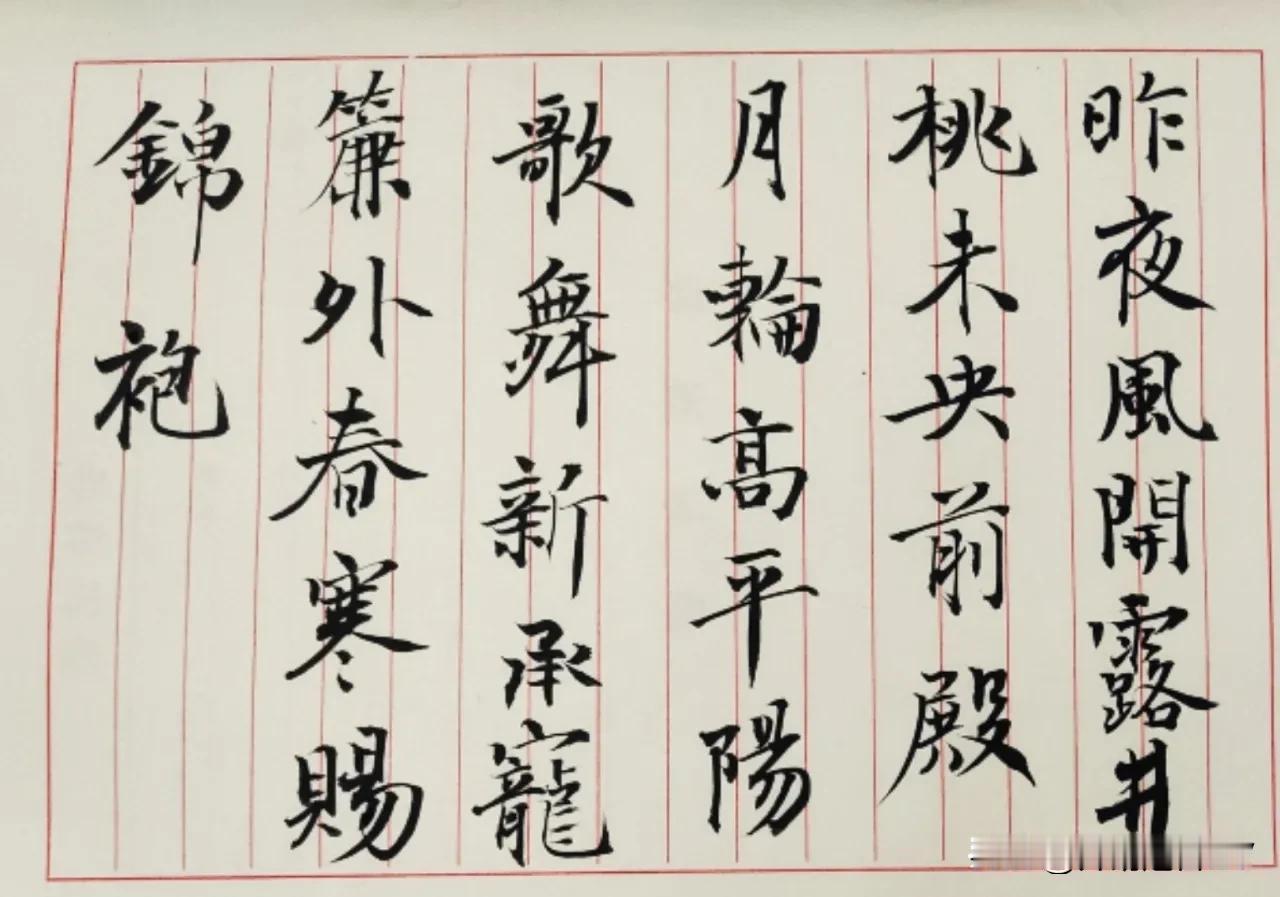 昨夜風開露井
桃未央前殿
月輪高平陽
歌舞新承寵
簾外春寒賜
錦袍